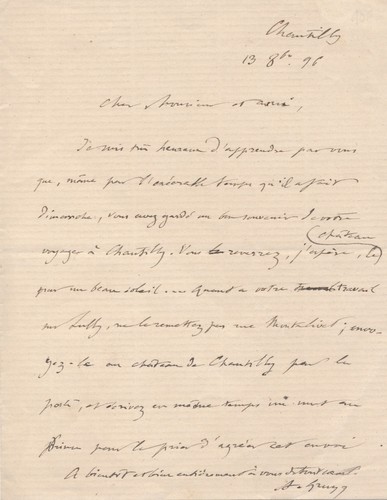 Chantilly
13 8bre 96
Cher Monsieur et ami,
Je suis très heureux d'apprendre par vous
que, même par l'exécrable temps qu'il a fait
Dimanche, vous avez gardé un bon souvenir de votre
voyage à Chantilly. Vous le reverrez, j'espère, le
(château
par un beau soleil. Quant à votre travail
sur Lully, ne le remettez pas rue Montalivet; envo-
yez-le au château de Chantilly par la
poste, et écrivez en même temps un mot au
Prince pour le prier d'agréer cet envoi
A bientôt et bien entièrement à vous de tout cœur
A. Gruyer